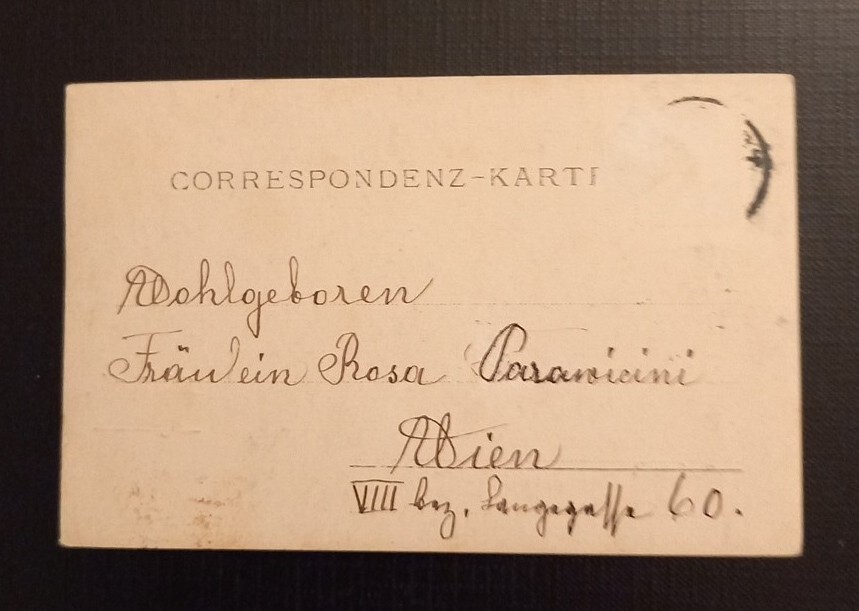 CORRESPONDENZ-KARTE
Wohlgeboren
Fräulein Rosa Parawicini
Wien
VIII bez. Langegasse 60.